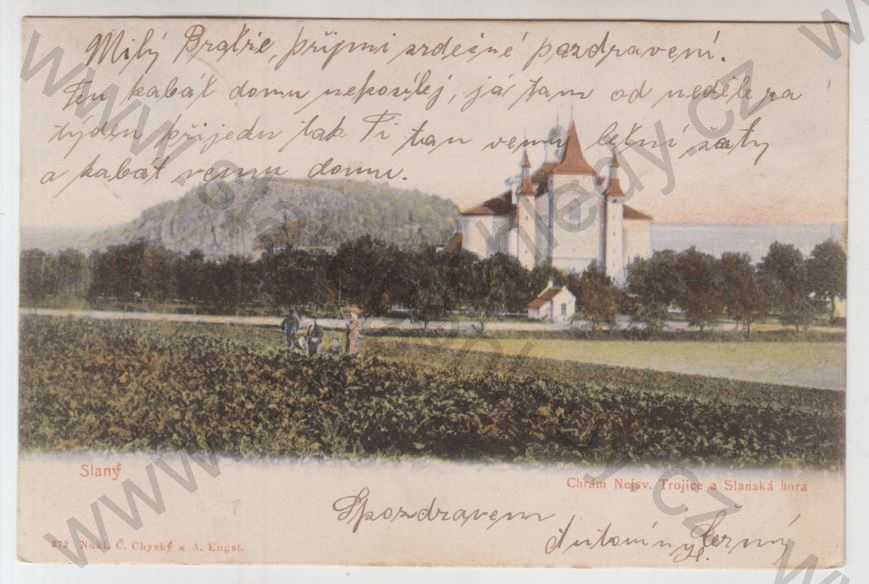 Milý Bratře, přijmi srdečné pozdravení.
Ten kabát domu neposílej, já tam od neděle za
týden přijedu tak Ti tam vemu letní šaty
a kabát vemu domu.
Slaný
Chrám Nejsv. Trojice a Slanská hora
S pozdravem
Antonín Černý
Nakl. Č. Chyský a A. Engst.